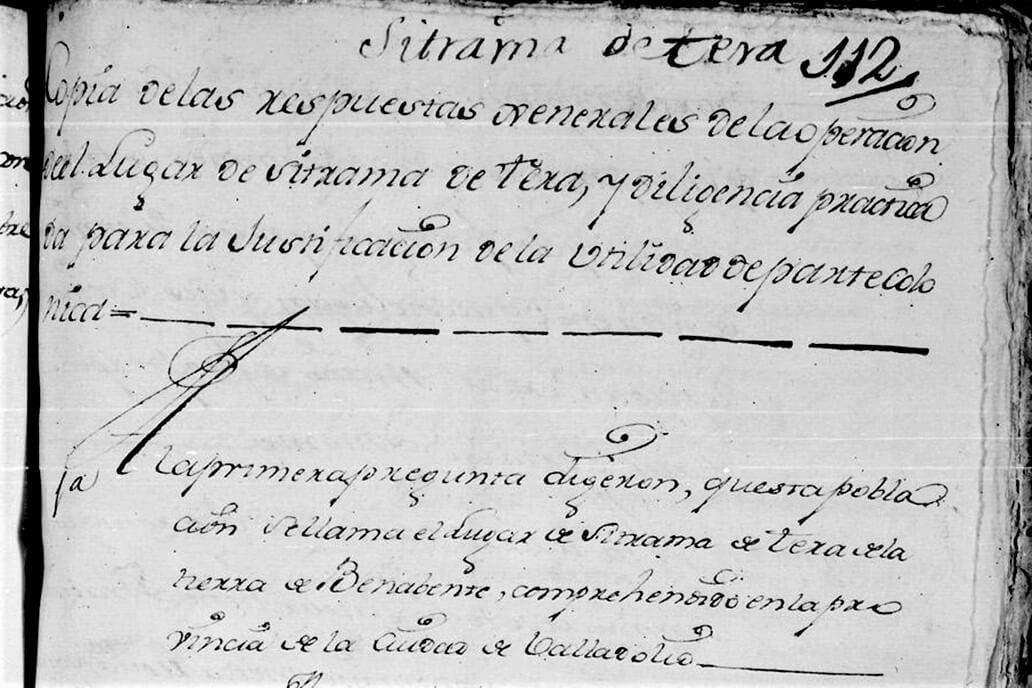 Sitrama de tera 112
Copia de las respuestas Generales de la operacion
del Lugar de Sitrama de Tera, y diligencia practica
da para la Justificacion de la Utilidad de parte colo
nica =
1a A la primera pregunta digeron, questa pobla
cion se llama el Lugar de Sitrama de Tera de la
tierra de Benabente, comprehendido en la pro
vincia de la Ciudad de Valladolid